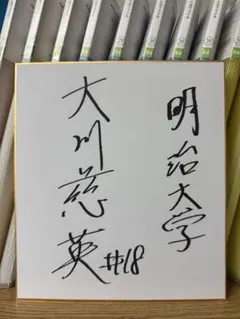 明治大学
大川慈英
#18